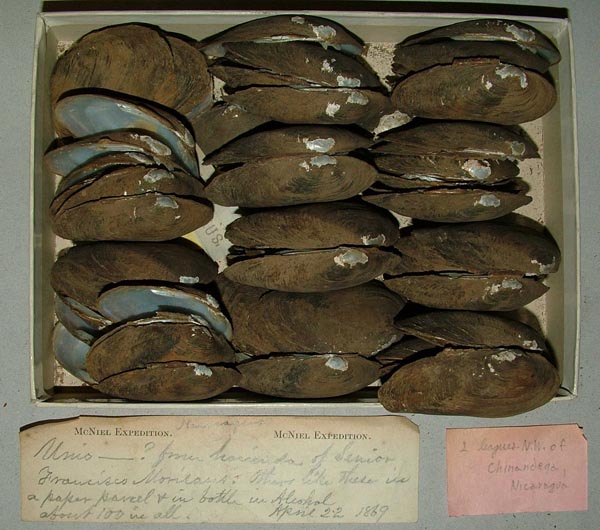 US
McNiel Expedition.
McNiel Expedition.
Unio — ? from hacienda of Senior
Francisco Morazans: Others like these in
a paper parcel & in bottle in Alcohol
about 100 in all. April 22 1869
2 leagues N.W. of
Chinandega,
Nicaragua